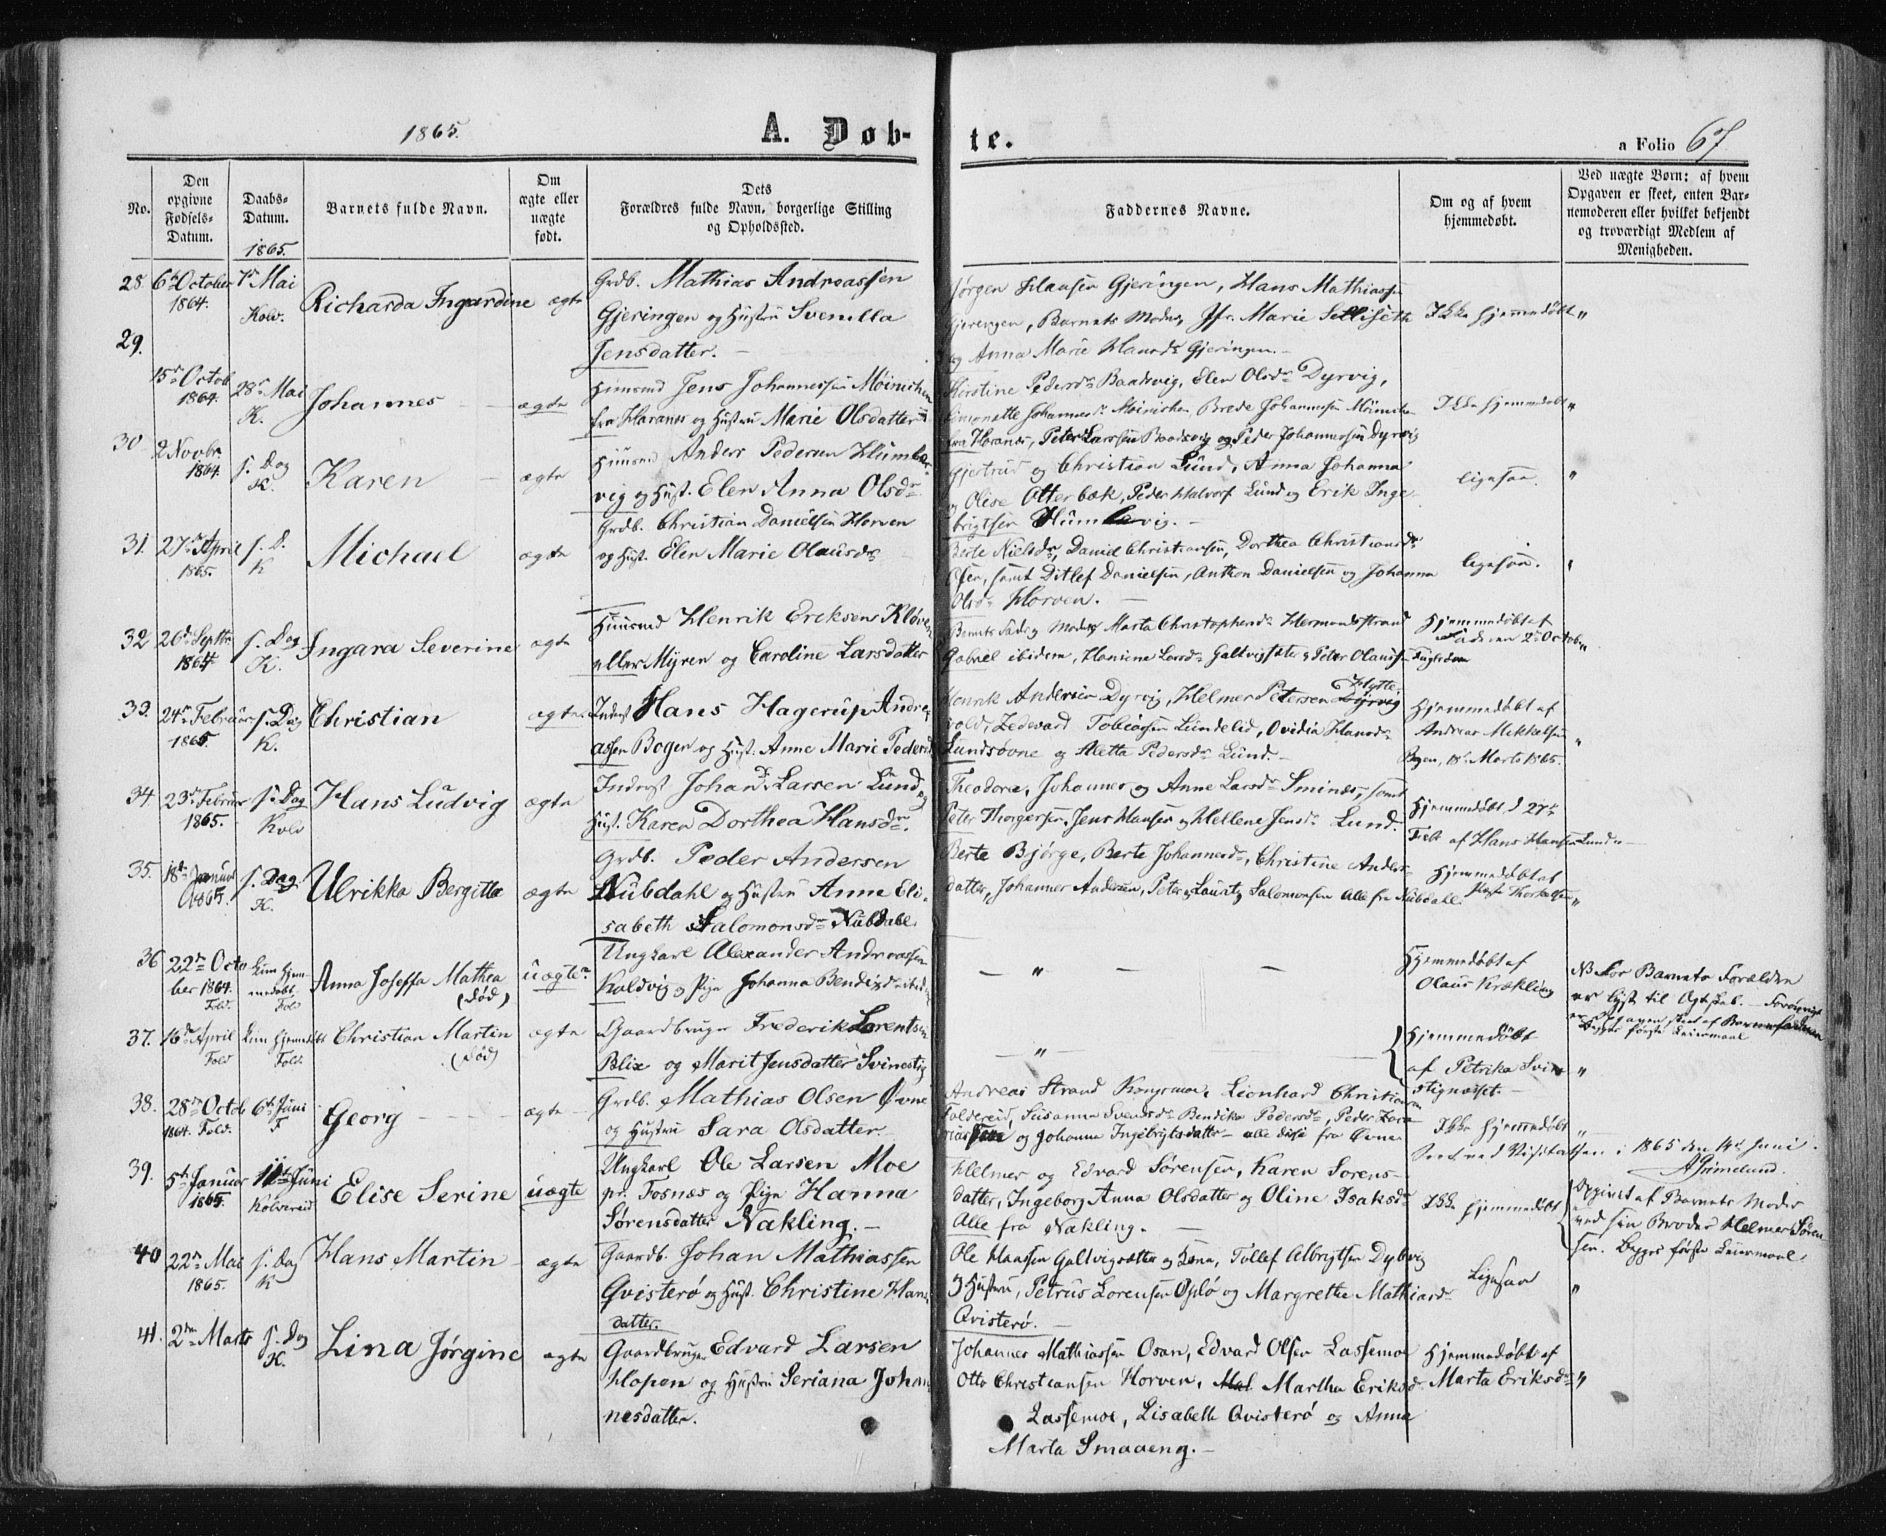 1865.
A. Døb-
te.
a Folio 67
No.
Den opgivne Fødsels-Datum.
Daabs-Datum.
1865.
Barnets fulde Navn.
Om ægte eller uægte født.
Dets Forældres fulde Navn, borgerlige Stilling og Opholdssted.
Faddernes Navne.
Om og af hvem hjemmedøbt.
Ved uægte Børn: af hvem Opgaven er skeet, enten Bar-nemoderen eller hvilket bekjendt og troværdigt Medlem af Menigheden.
28. 6te October 1864. Mai Kolv. Richarda Ingardine ægte
Grdb. Mathias Andreassen
Gjeringen og Hustru Svenilla
Jensdatter.
Jørgen Hansen Gjeringen, Hans Mathiassen
Gjeringen, Barnets Moder, Jfr. Marie Setliseth
og Anna Marie Hansd. Gjeringen.
Ikke hjemmedøbt "
29. 15de Octob 1864. 28de Mai K. Johannes ægte
Huusmd Jens Johannessen Møinichen
fra Horanes og Hustru Marie Olsdatter
Kirstine Pedersdr Baadsvig, Elen Olsdr Dyrvig,
Johannesdr Moinichen, Brede Johannessen Møinichen
fra Horanes, Peter Larssen Baadsvig og Peder Johannessen Dyrvig
Ikke hjemmedøbt "
30 2 Novbr. 1864. s. Dag K. Karen ægte
Huusmd Anders Pedersen Humlar-
vig og Hust. Elen Anna Olsdr
Gjertrud og Christian Lund, Anna Johanna
og Olise Otterbæk, Peder Halvorss Lund og Erik Inge-
brigtsen Humlavig.
ligesaa. "
31. 27de April 1865. s. D. K Michael ægte
Grdb. Christian Danielsen Horven
og Hust. Elen Marie Olausdr
Berte Nielsdr, Daniel Christiansen, Dorthea Christiansdr
Osen, samt Ditlef Danielsen, Anthon Danielsen og Johanna
Olsdr Horven.
ligesaa.
32 26de Septbr. 1864 s. Dag K. Ingara Severine ægte
Huusmd Henrik Eriksen Kløven
eller Myren og Caroline Larsdatter
Barnets Fader og Moder Marta Christophersdr Hermandsstrand
Gabriel ibidem, Hansine Larsdr Galtvigsæter og Peter Olaussen
Hjemmedøbt af
den 2de October
33. 24de Februar 1865. s. Dag K. Christian ægte.
Inderst Hans Hagerup Andre-
assen Bogen og Hust. Anne Marie Pedersd.
Henrik Andersen Dyrvig, Helmer Petersen Hytte
vold, Zedevard Tobiassen Lundelid, Ovidia Hansdr
Lundsøvne og Aletta Pedersdr Lund.
Hjemmedøbt af
Andreas Mikkelsen
Bogen, 18de Marts 1865.
"
34. 23de Februar 1865. s. Dag Kolv Hans Ludvig ægte
Inderst Johan Larsen Lund og
Hust. Karen Dorthea Hansdr.
Theodore, Johannes og Anne Larsdr Sminæs, samt
Peter Thorgersen, Jens Hansen og Hellene Jensdr Lund.
Hjemmedøbt d 27de
Febr af Hans Hansen Lund
35. 18de Januar 1865. s. Dag K. Ulrikka Bergitta ægte
Grdb. Peder Andersen
Nubdahl og Hustru Anne Eli-
sabeth Salomonsdr Nubdahl.
Berte Bjørge, Berte Johannesdr, Christine Anders-
datter, Johannes Andersen, Peter og Lauritz Salomonsen alle fra Nubdahl.
Hjemmedøbt af
Thorkelsen "
36 22de Octo ber 1864. Fold. Kun hjem medøbt Fold Anna Joseffa Mathea (død) uægte
Ungkarl Alexander Andreassen
Koldvig og Pige Johanna Bendixdr ibid.
— " — —
Hjemmedøbt af
Olaus Krækling
NB For Barnets Forældre
er lyst til Ægtskab. Forøvrigt
er Opgaven skeet af Barnefaderen
Begges første Leiermaal
37. 16de April Fold Kun hjemmedøbt Fold. Christian Martin (død) ægte
Gaardbruger Frederik Lorentsen
Blix og Marit Jensdatter Svinestig
— " —
Hjemmedøbt
af Petrika Svine
stignæsset.
"
38. 28de Octob 1864. Fold. 6te Juni F Georg ægte
Grdb. Mathias Olsen Øvne
og Hustru Sara Olsdatter
Andreas Strand Kongsmoe, Lionhard Christiansen
Foldereid, Susanna Svendsdr Bendika Pedersdr, Peder Zaca
riassen og Johanna Ingebrigtsdatter alle disse fra Øvne
Ikke hjemmedøbt "
Seet ved Visitatsen i 1865 den 14de Juni.
AGrimelund.
39. 5te Januar 1865. 11te Juni Kolvereid Elise Serine uægte
Ungkarl Ole Larsen Moe
pr. Fosnæs og Pige Hanna
Sørensdatter Nakling.
Helmer og Edvard Sørensen, Karen Sorens-
datter, Ingeborg Anna Olsdatter og Oline Isaksdr
Alle fra Nakling.
Ikke hjemmedøbt
Opgivet af Barnets Moder
ved sin Broder Helmer Søren
sen. Begges første Leiermaal.
40 22de Mai 1865. s. Dag K Hans Martin ægte
Gaardb. Johan Mathiassen
Qvisterø og Hust. Christine Hans
datter.
Ole Hansen Galtvigsæter og Kone, Tollef Albrigtsen Dybvig
og Hustru, Petrus Lorensen Opløe og Margrethe Mathiasdr
Qvisterø.
Ligesaa "
41. 2den Marts s. Dag K. Lina Jørgine ægte
Gaardbruger Edvard Larsen
Hopen og Hustru Seriana Johan-
nesdatter.
Johannes Mathiassen Osan, Edvard Olsen Lassemoe
Otto Christiansen Horven, Martha Eriksd.
Lassemoe, Lisabeth Qvisterø og Anna
Marta Smaaeng.
Hjemmedøbt af
Marta Eriksdr "